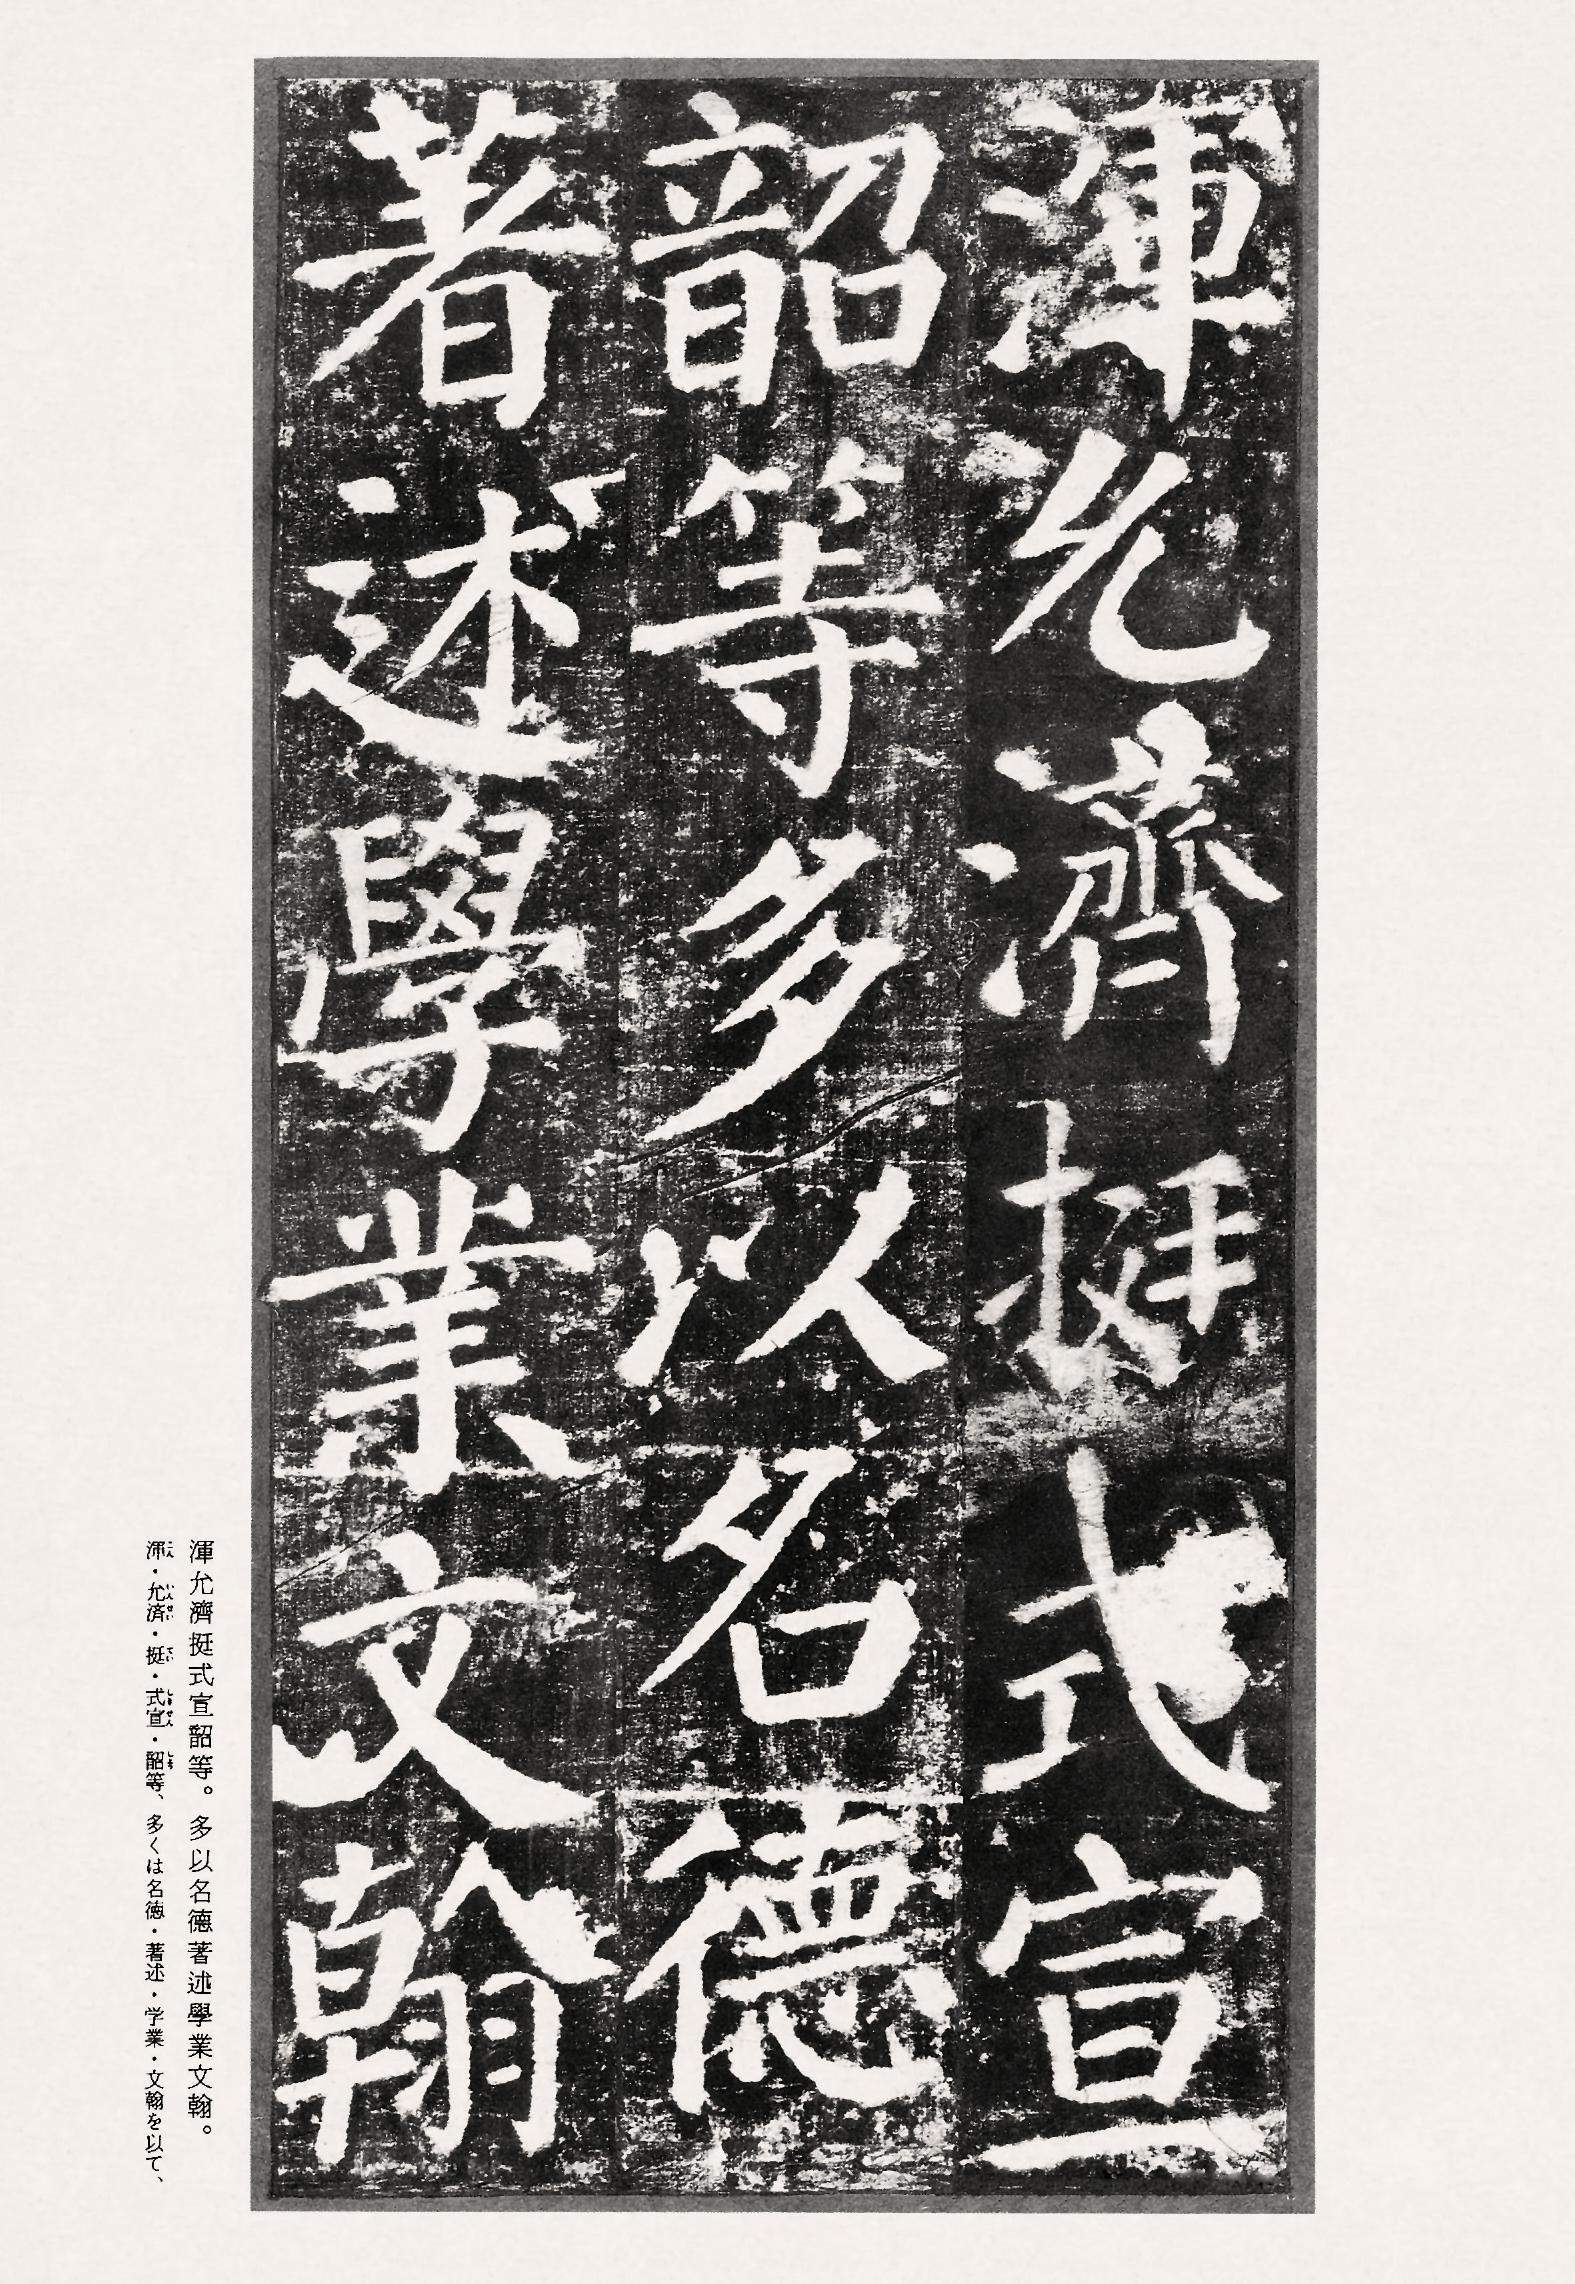 渾允濟挺式宣
韶等多以名德
著述學業文翰
渾允濟挺式宣韶等。多以名德著述學業文翰。
渾・允済・挺・式宣・韶等、多くは名徳・著述・学業・文翰を以て、